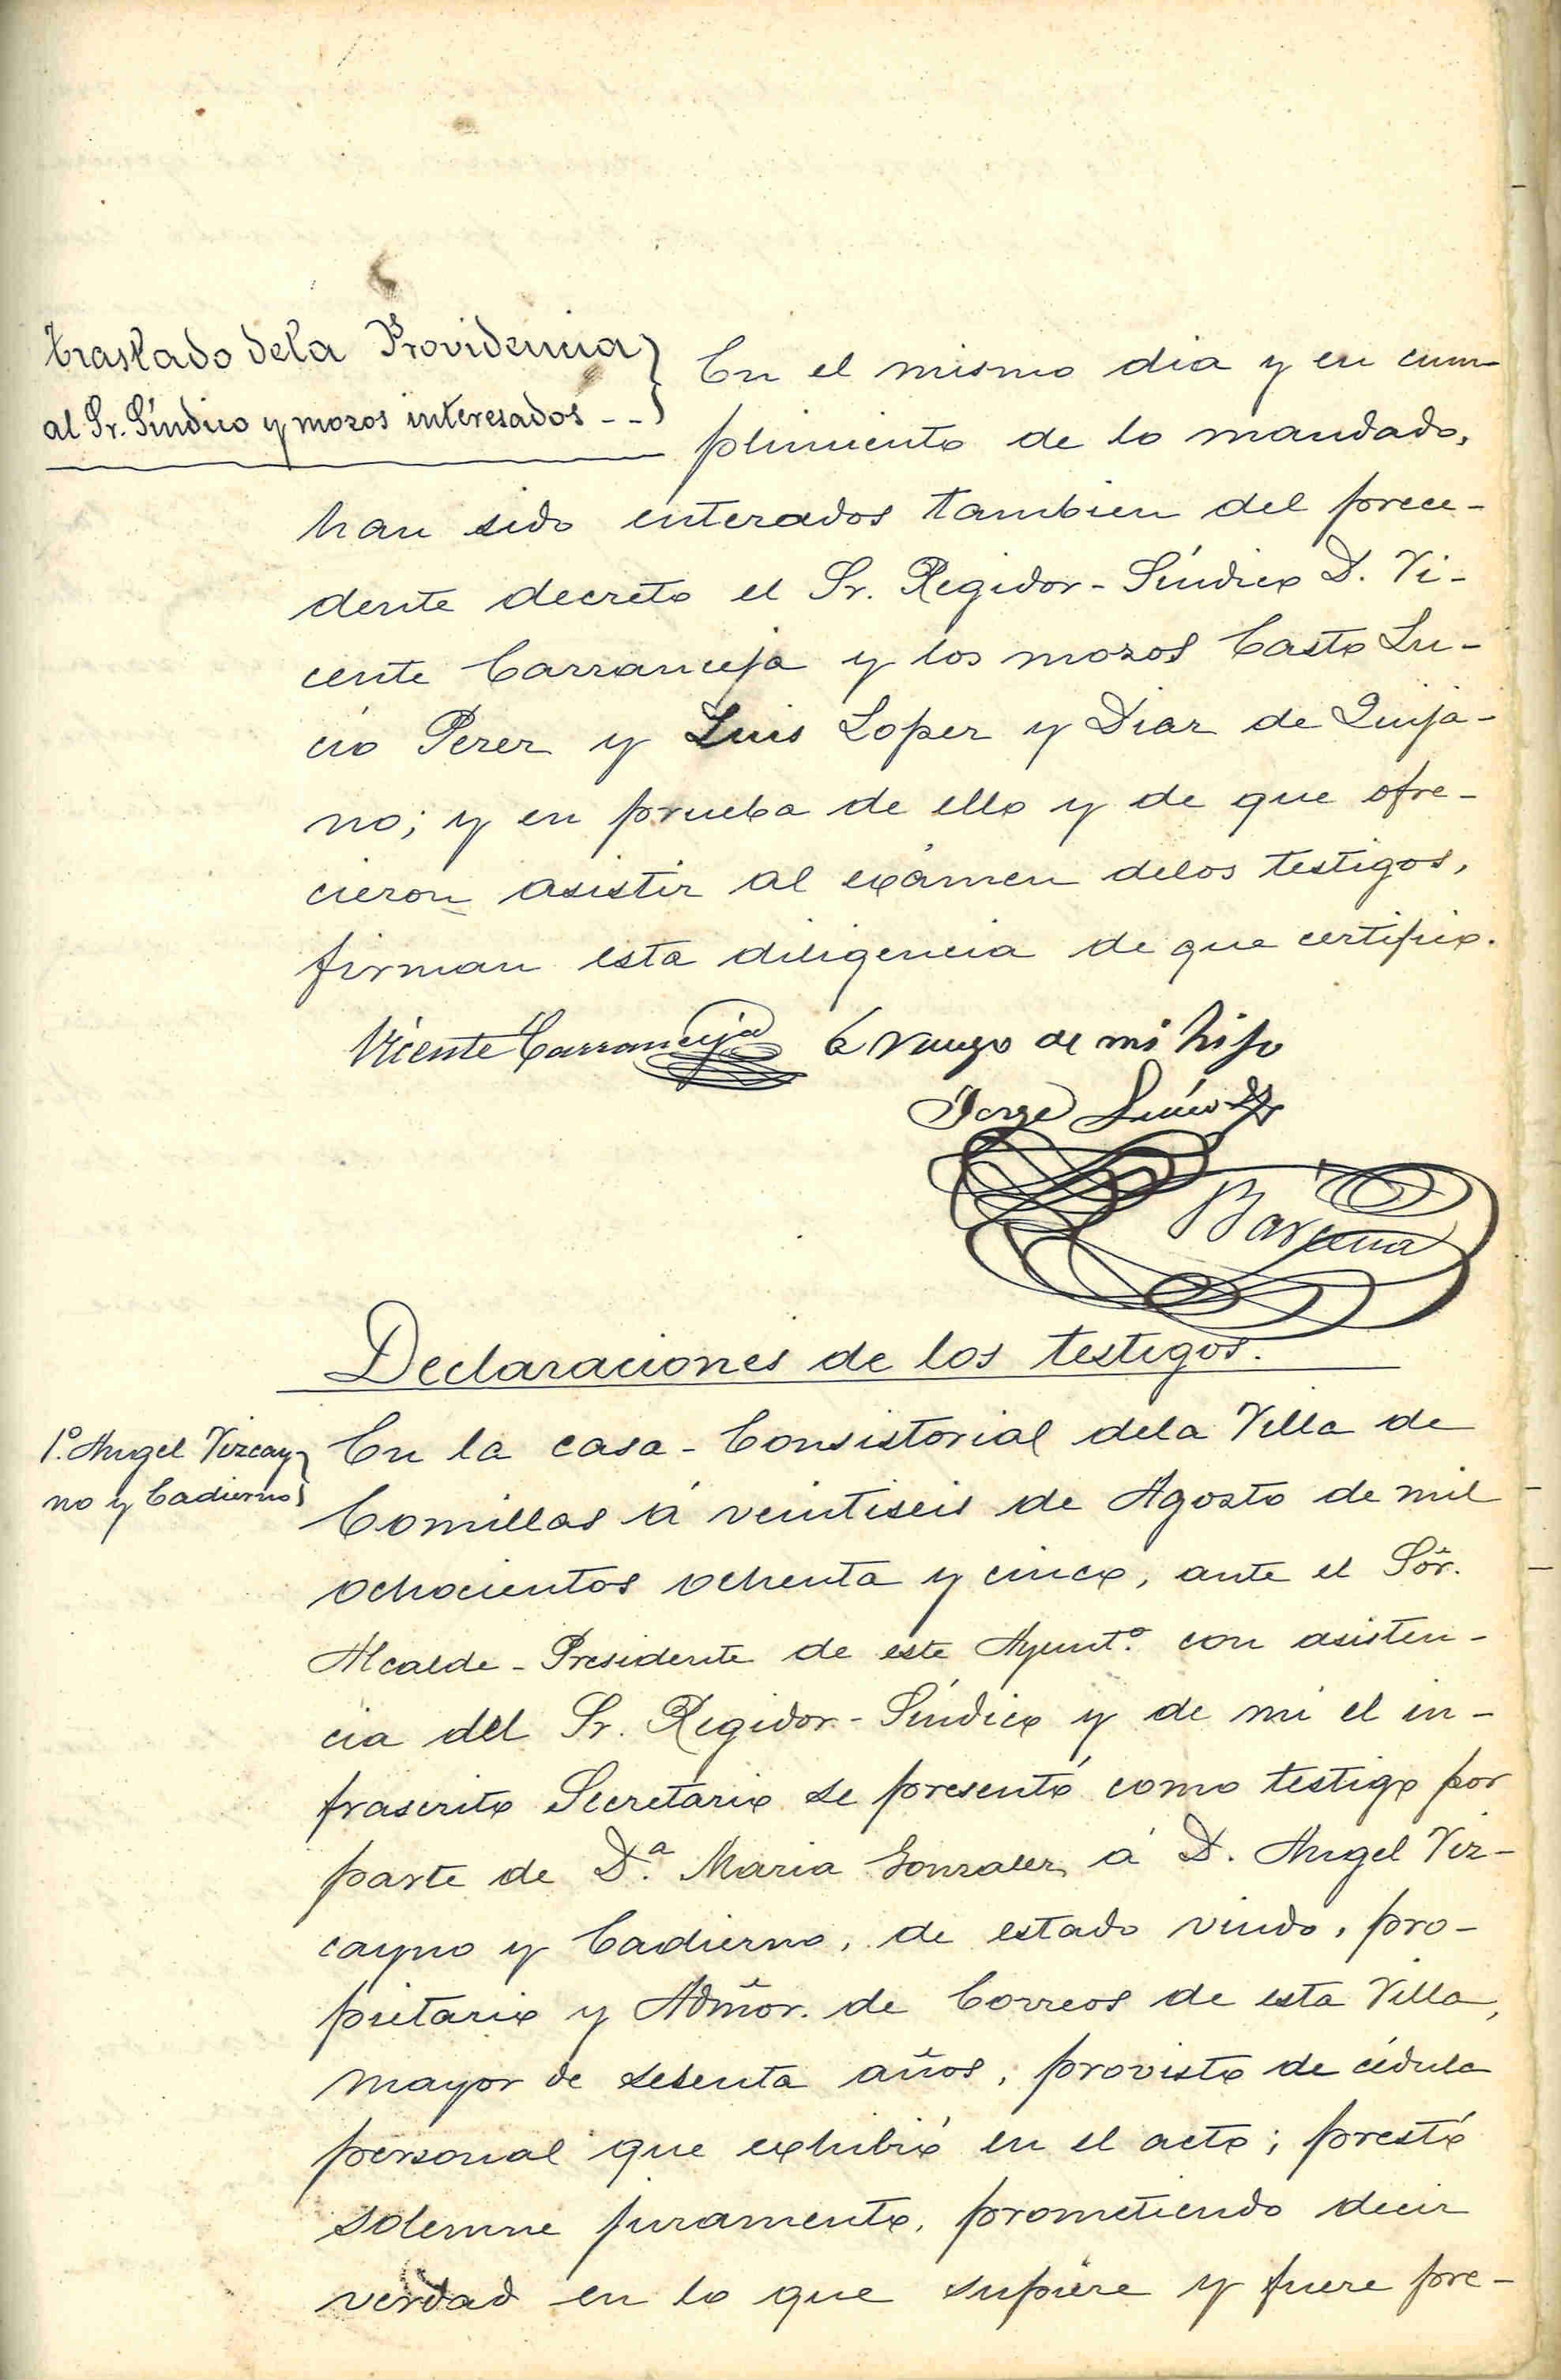 Traslado dela Providencia
al Sr. Síndico y mozos interesados --
En el mismo dia y en cum-
plimiento de lo mandado,
han sido enterados tambien del prece-
dente decreto el Sr. Regidor-Síndico D. Vi-
cente Carranceja y los mozos Casto Lu-
cio Perez y Luis Lopez y Diaz de Quija-
no; y en prueba de ello y de que ofre-
cieron asistir al exámen delos testigos,
firman esta diligencia de que certifico.
Vicente Carranceja
a ruego de mi hijo
Jorge Lucio
Barcena
Declaraciones de los testigos.
1.º Angel Vizcay-
no y Cadierno
En la casa-Consistorial dela Villa de
Comillas á veintiseis de Agosto de mil
ochocientos ochenta y cinco, ante el Sõr.
Alcalde-Presidente de este Ayunt.º con asisten-
cia del Sr. Regidor-Síndico y de mi el in-
frascrito Secretario se presentó como testigo por
parte de D.ª Maria Gonzalez á D. Angel Viz-
cayno y Cadierno, de estado viudo, pro-
pietario y Admõr. de Correos de esta Villa,
mayor de sesenta años, provisto de cédula
personal que exhibió en el acto; prestó
solemne juramento, prometiendo decir
verdad en lo que supiere y fuere pre-